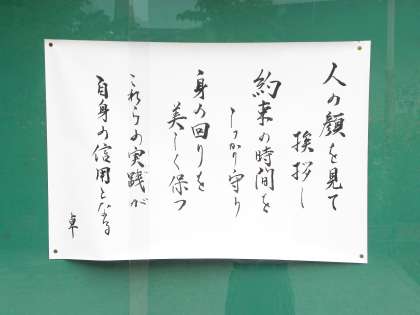 人の顔を見て
挨拶し
約束の時間を
しっかり守り
身の回りを
美しく保つ
これらの実践が
自身の信用となる
卓